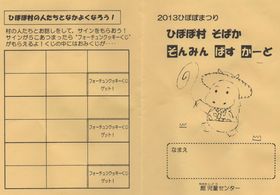 ひぽぽ村の人たちとなかよくなろう！
村の人たちとお話しして、サインをもらおう！
サインが5こあつまったら"フォーチュンクッキーくじ"
がもらえるよ！くじの中にはおみくじが…
フォーチュンクッキーくじ
ゲット！
フォーチュンクッキーくじ
ゲット！
フォーチュンクッキーくじ
ゲット！
2013ひぽぽまつり
ひぽぽ村 そばか
そんみん ぱす かーど
なまえ
児童センター